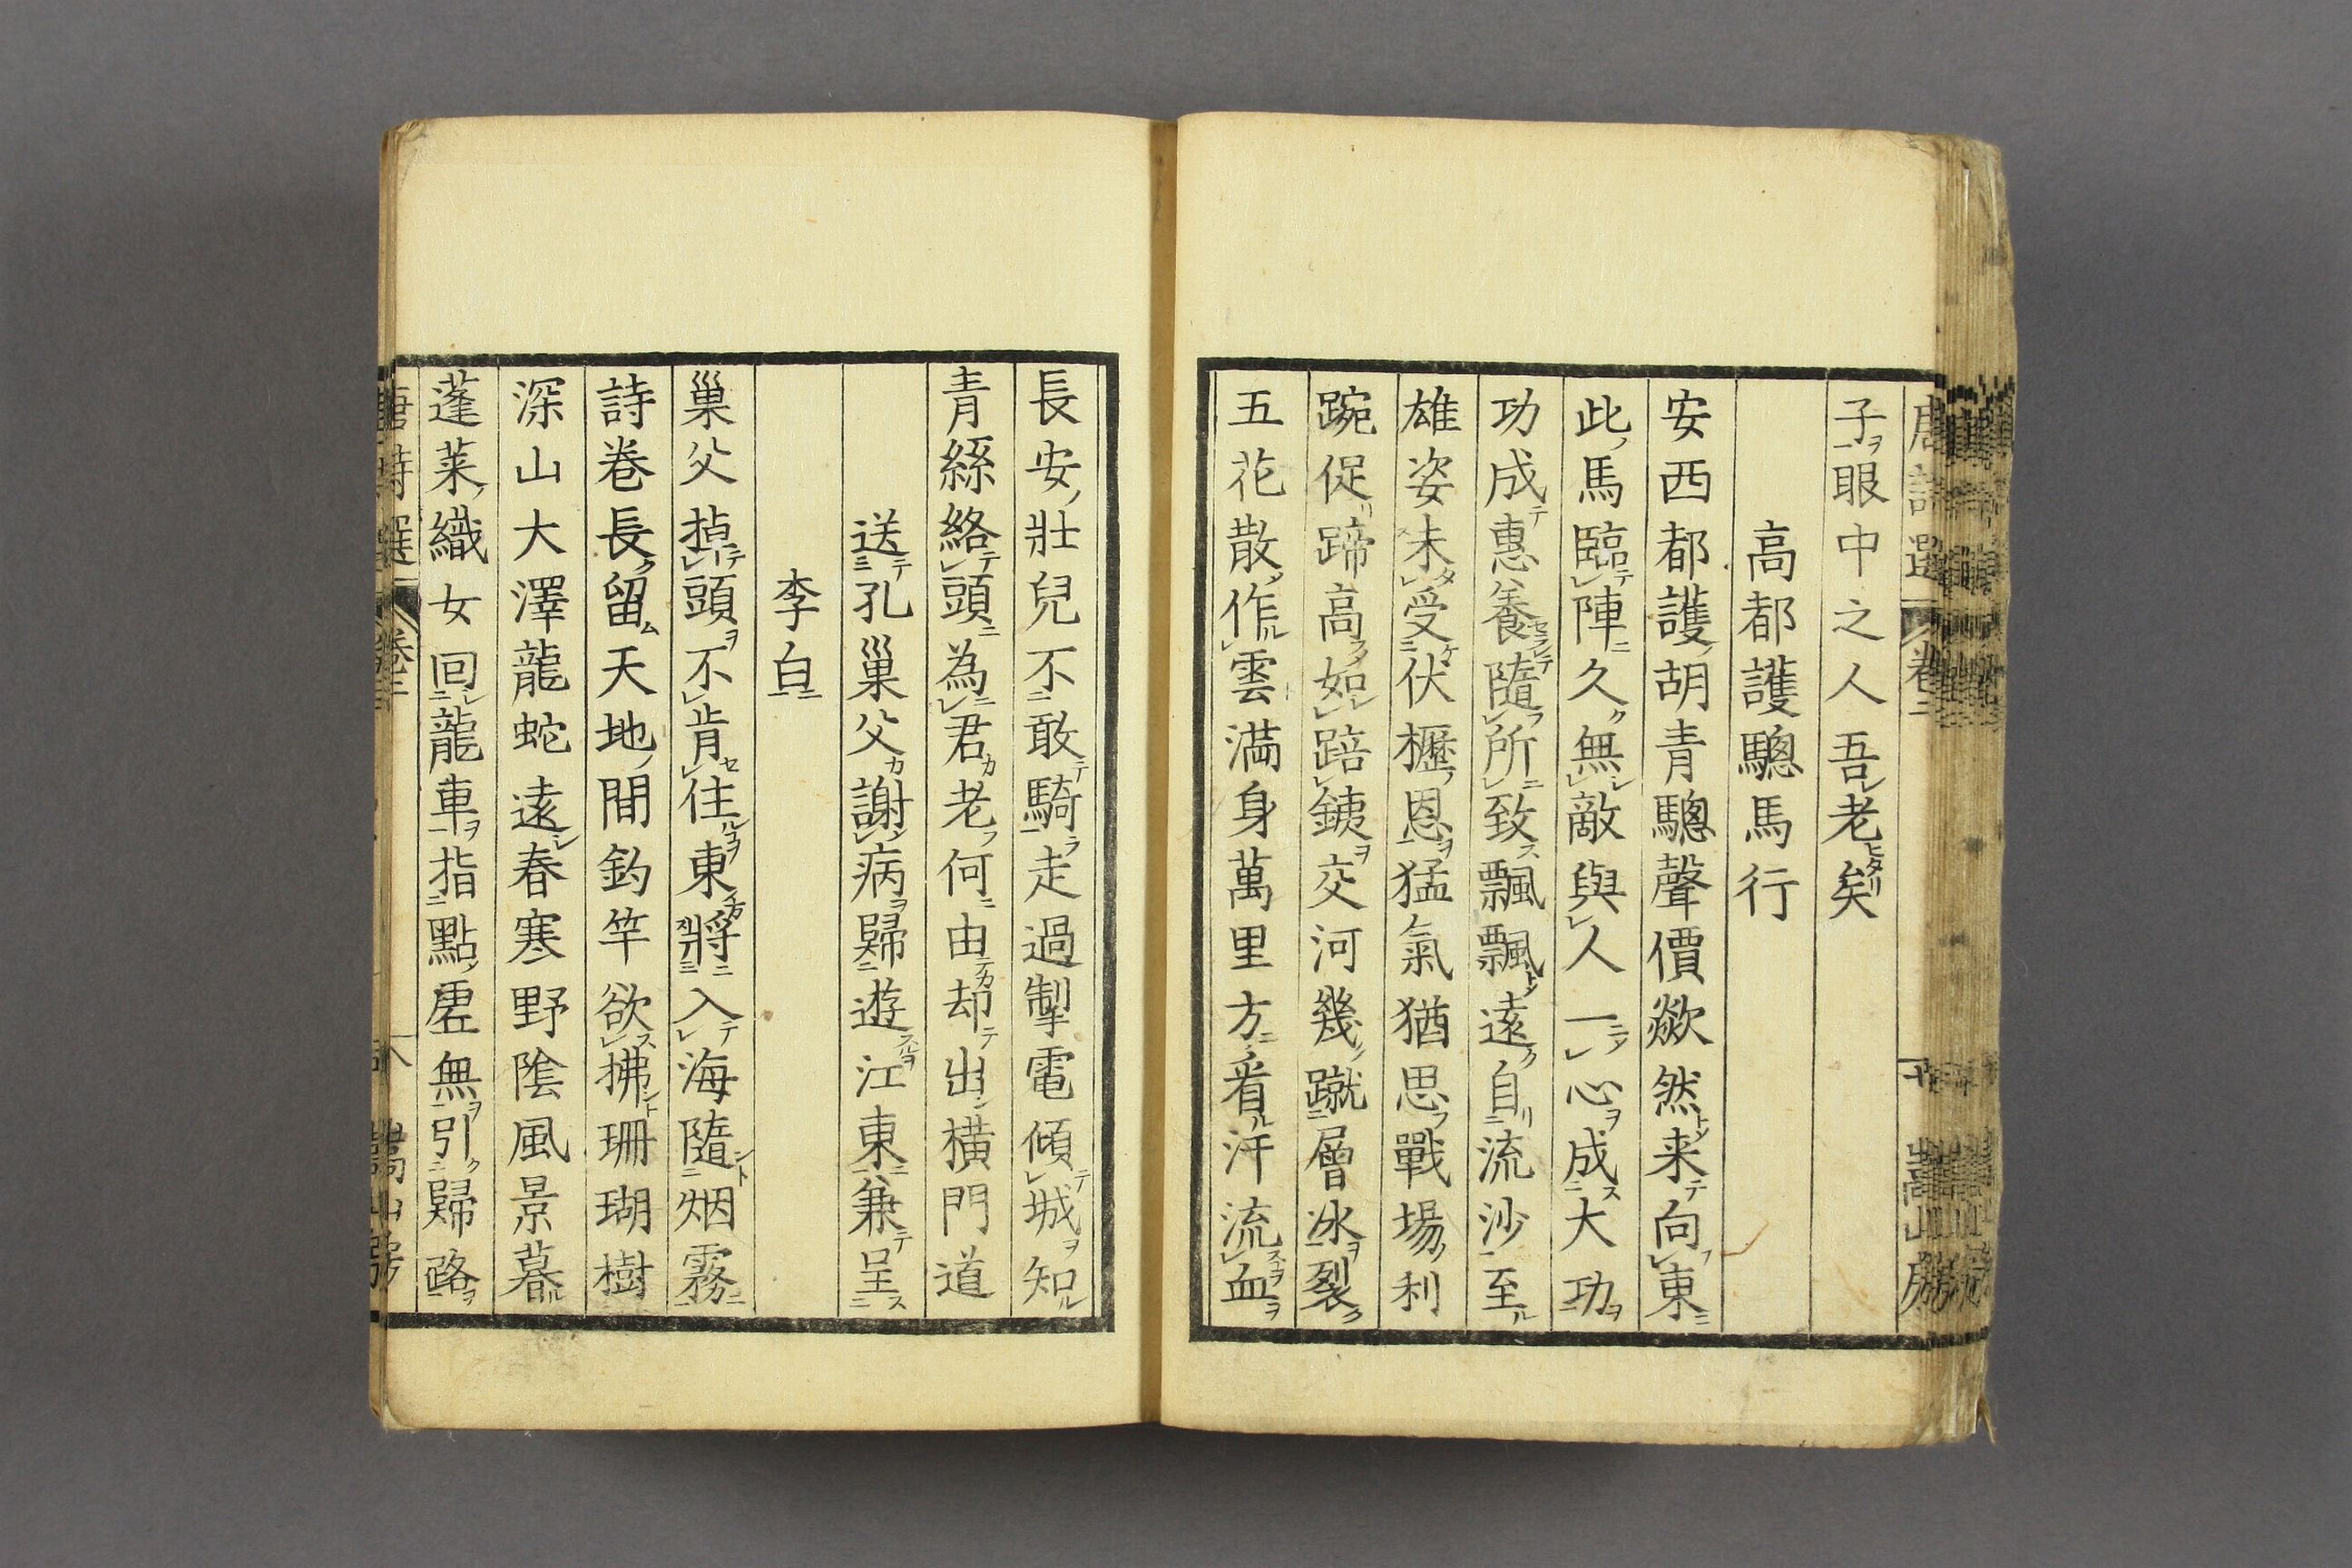 子眼中之人吾老矣
高都護驄馬行
安西都護胡青驄聲價歘然来向東
此馬臨陣久無敵與人一心成大功
功成惠養隨所致飄飄遠自流沙至
雄姿未受伏櫪恩猛氣猶思戰場利
踠促蹄高如踣鐵交河幾蹴層冰裂
五花散作雲満身萬里方看汗流血
長安壯兒不敢騎走過掣電傾城知
青絲絡頭為君老何由却出横門道
送孔巢父謝病歸遊江東兼呈
李白
巢父掉頭不肯住東將入海隨烟霧
詩卷長留天地間釣竿欲拂珊瑚樹
深山大澤龍蛇遠春寒野陰風景暮
蓬莱織女回龍車指點虚無引歸路
唐詩選 卷二